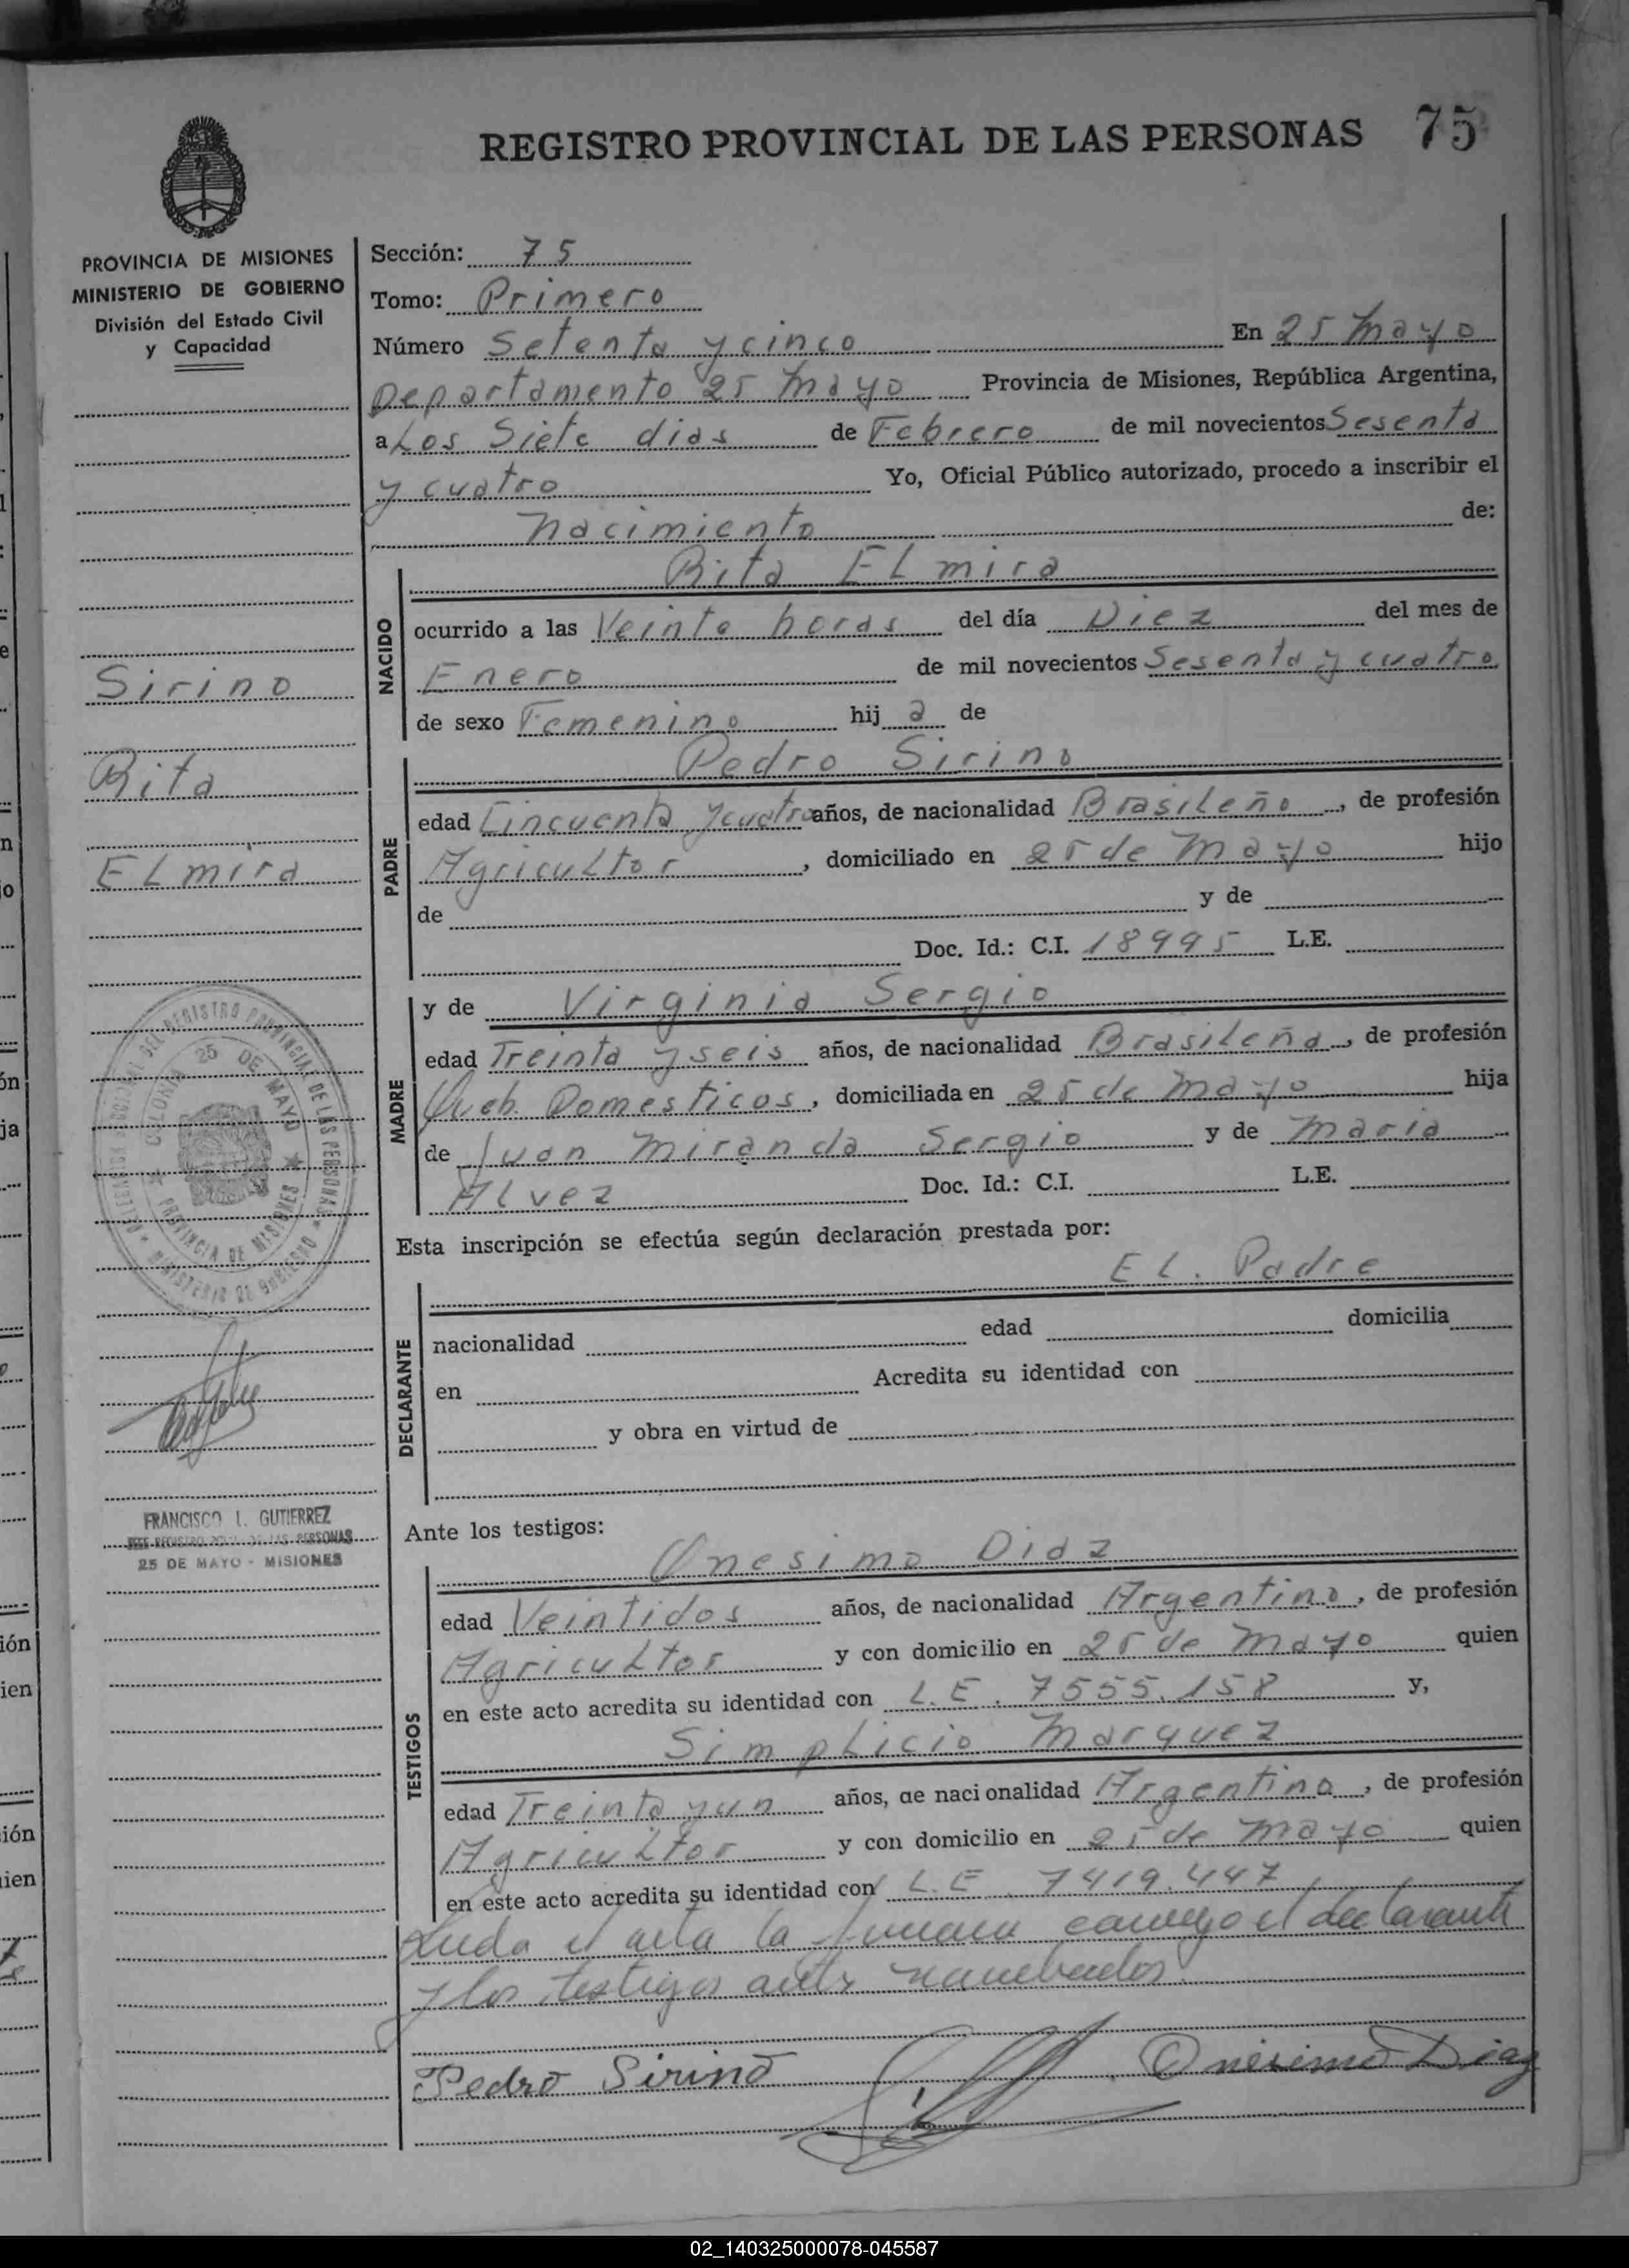 REGISTRO PROVINCIAL DE LAS PERSONAS 75
PROVINCIA DE MISIONES
MINISTERIO DE GOBIERNO
División del Estado Civil
y Capacidad
Sirino
Rita
ELmira
COLONIA 25 DE MAYO
PROVINCIA DE MISIONES
FRANCISCO L. GUTIERREZ
25 DE MAYO - MISIONES
Sección: 75
Tomo: Primero
Número Setenta y cinco En 25 mayo
Departamento 25 mayo Provincia de Misiones, República Argentina,
a Los Siete dias de Febrero de mil novecientos Sesenta
y cuatro Yo, Oficial Público autorizado, procedo a inscribir el
nacimiento de:
NACIDO
Rita ELmira
ocurrido a las Veinte horas del día Diez del mes de
Enero de mil novecientos Sesenta y cuatro
de sexo Femenino hij a de
PADRE
Pedro Sirino
edad Cincuenta y cuatro años, de nacionalidad Brasileño, de profesión
Agricultor, domiciliado en 25 de mayo hijo
de y de
Doc. Id.: C.I. 18995 L.E.
MADRE
y de Virginia Sergio
edad Treinta y seis años, de nacionalidad Brasileña, de profesión
Queh. Domesticos, domiciliada en 25 de mayo hija
de Juan Miranda Sergio y de Maria
ALvez Doc. Id.: C.I. L.E.
Esta inscripción se efectúa según declaración prestada por:
DECLARANTE
EL. Padre
nacionalidad edad domicilia
en Acredita su identidad con
y obra en virtud de
Ante los testigos:
TESTIGOS
Onesimo Diaz
edad Veintidos años, de nacionalidad Argentino, de profesión
Agricultor y con domicilio en 25 de mayo quien
en este acto acredita su identidad con L.E. 7555.158 y,
SimpLicio Marquez
edad Treinta y un años, de nacionalidad Argentino, de profesión
Agricultor y con domicilio en 25 de mayo quien
en este acto acredita su identidad con L.E. 7419.447
Leida el acta la firman conmigo el declarante
y los testigos antes nombrados
Pedro Sirino Onesimo Diaz
02_140325000078-045587